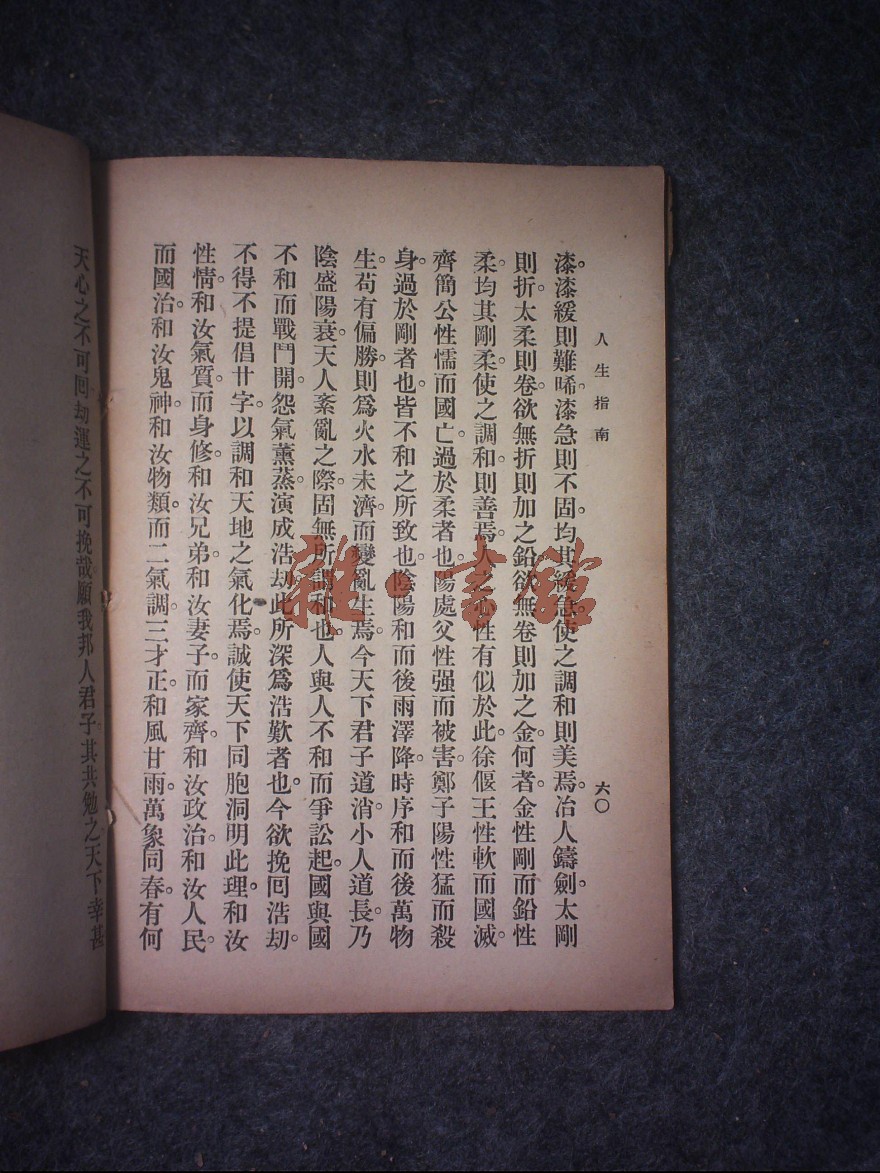 人生指南
六〇
漆。漆緩則難晞。漆急則不固。均其緩急。使之調和則美焉。冶人鑄劍。太剛
則折。太柔則卷。欲無折則加之鉛。欲無卷則加之金。何者。金性剛而鉛性
柔。均其剛柔。使之調和則善焉。人之心性有似於此。徐偃王性軟而國滅。
齊簡公性懦而國亡。過於柔者也。陽處父性强而被害。鄭子陽性猛而殺
身。過於剛者也。皆不和之所致也。陰陽和而後雨澤降。時序和而後萬物
生。苟有偏勝。則爲火水未濟。而變亂生焉。今天下君子道消。小人道長。乃
陰盛陽衰。天人紊亂之際。固無所調和也。人與人不和而爭訟起。國與國
不和而戰鬥開。怨氣薰蒸。演成浩劫。此所深爲浩歎者也。今欲挽回浩劫。
不得不提倡廿字。以調和天地之氣化焉。誠使天下同胞洞明此理。和汝
性情。和汝氣質。而身修。和汝兄弟。和汝妻子。而家齊。和汝政治。和汝人民。
而國治。和汝鬼神。和汝物類。而二氣調。三才正。和風甘雨。萬象同春。有何
天心之不可回劫運之不可挽哉願我邦人君子其共勉之天下幸甚
雜·書館